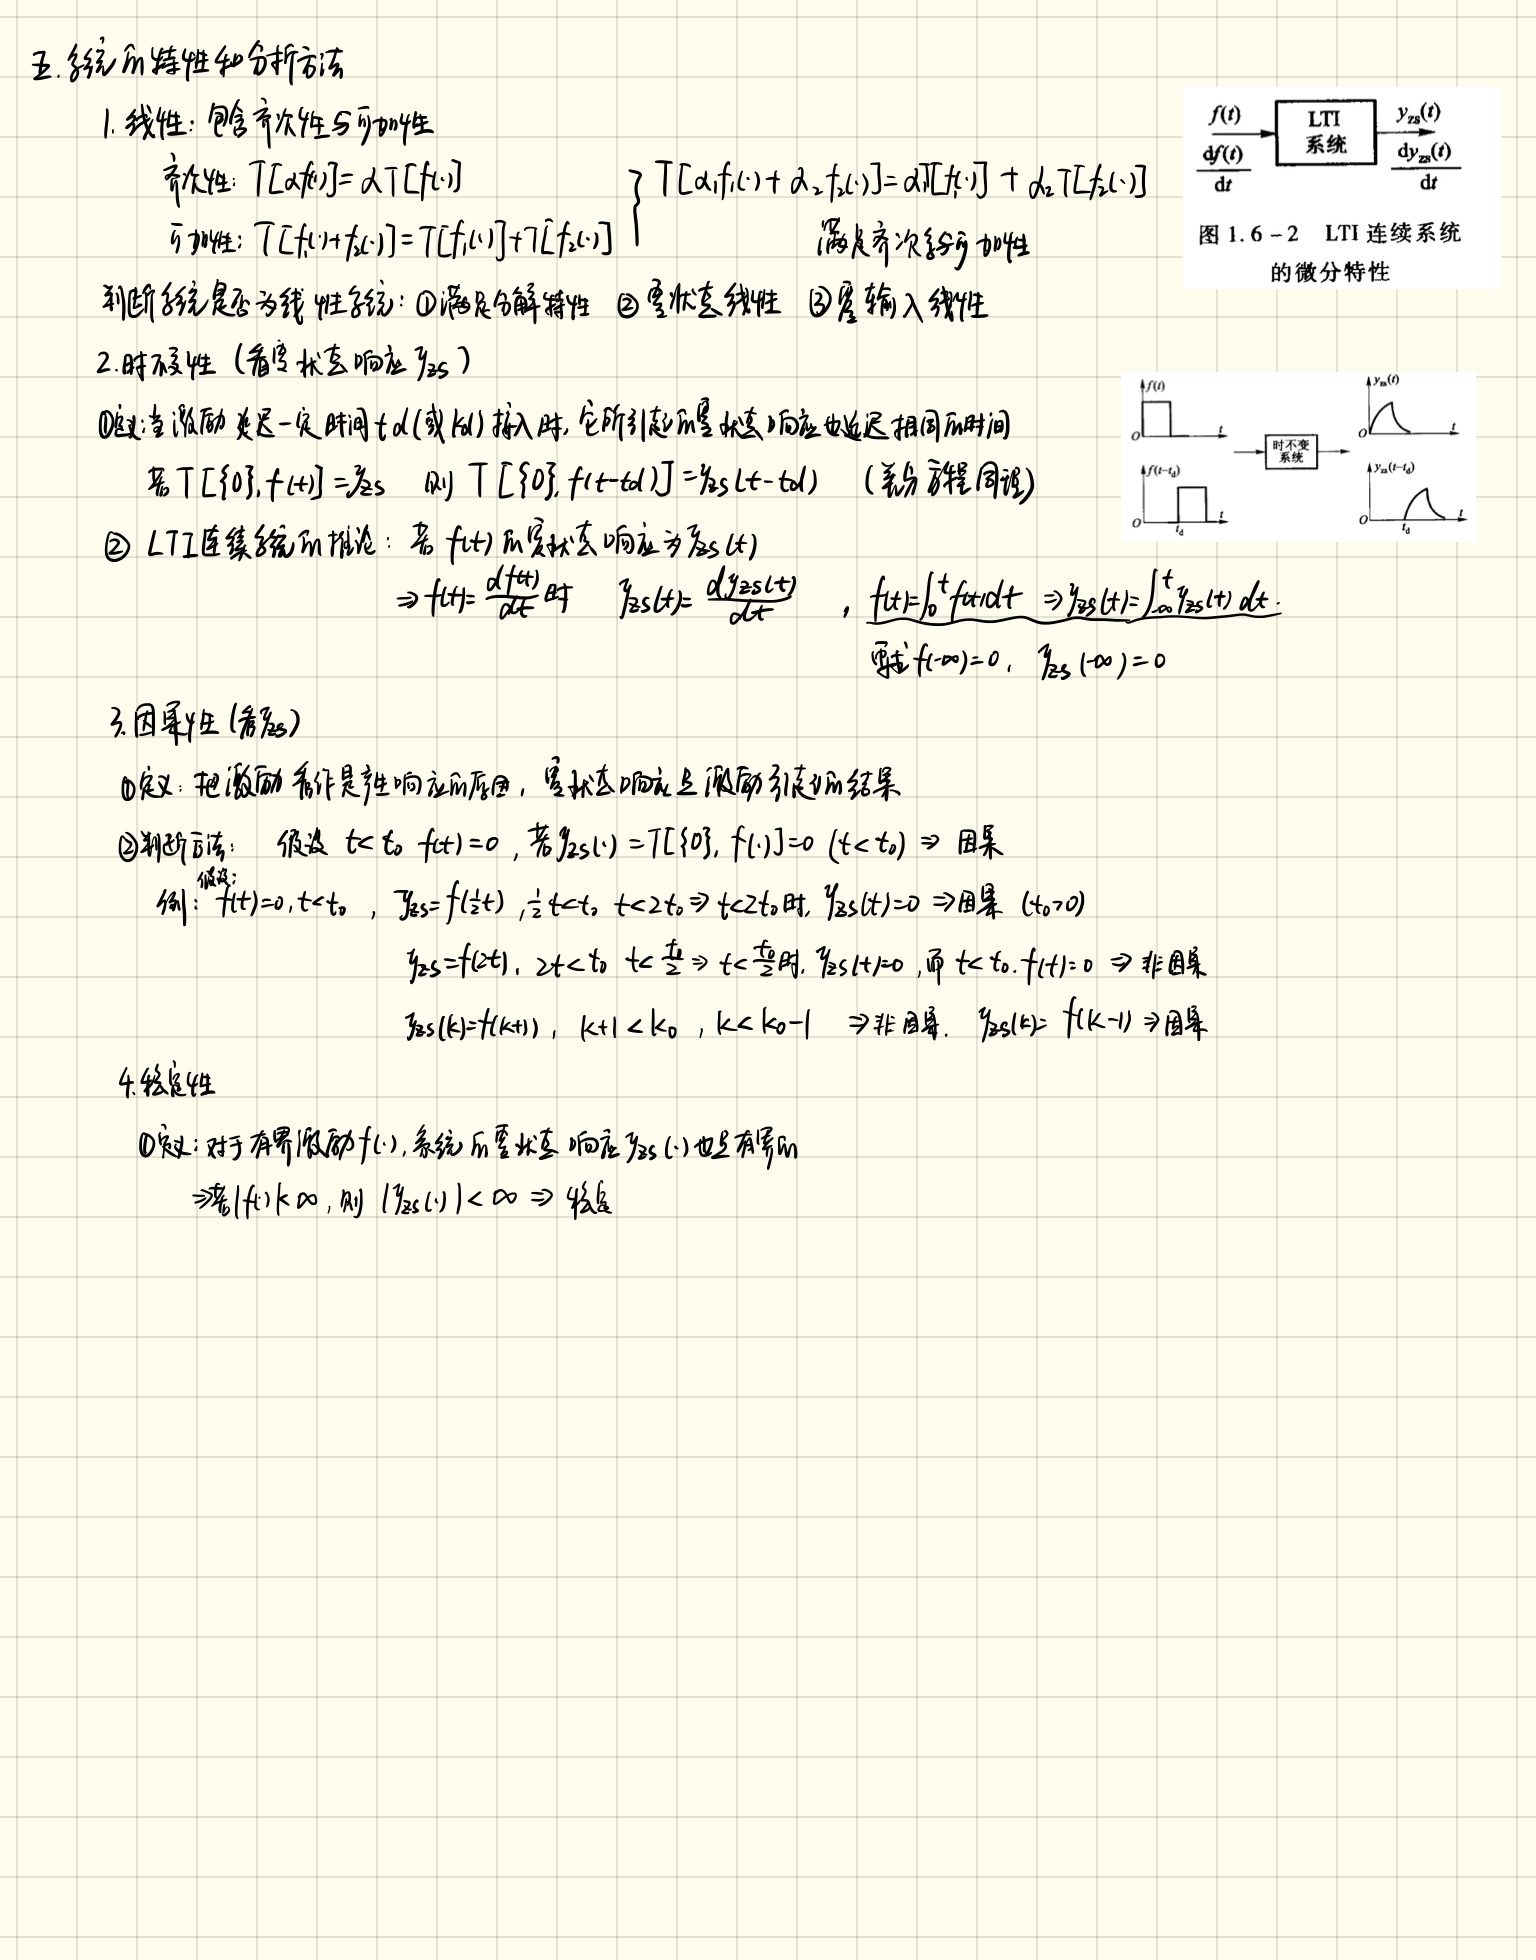 五.系统的特性和分析方法
1. 线性: 包含齐次性与可加性
齐次性: T[αf(·)]=αT[f(·)]
可加性: T[f₁(·)+f₂(·)]=T[f₁(·)]+T[f₂(·)]
} T[α₁f₁(·)+α₂f₂(·)]=α₁T[f₁(·)]+α₂T[f₂(·)]
满足齐次与可加性
判断系统是否为线性系统: ①满足分解特性 ②零状态线性 ③零输入线性
f(t) LTI 系统 yzs(t)
df(t)/dt dyzs(t)/dt
图 1.6-2 LTI 连续系统
的微分特性
2.时不变性 (看零状态响应yzs)
①定义:当激励延迟一定时间td(或kd)接入时,它所引起的零状态响应也延迟相同的时间
若T[{0},f(t)]=yzs 则 T[{0},f(t-td)]=yzs(t-td) (差分方程同理)
f(t) O t yzs(t) O t
时不变 系统
f(t-td) O td t yzs(t-td) O td t
② LTI连续系统的推论: 若 f(t)的零状态响应为yzs(t)
⇒f(t)=df(t)/dt时 yzs(t)=dyzs(t)/dt , f(t)=∫₀ᵗf(t)dt ⇒yzs(t)=∫₋∞ᵗyzs(t)dt.
要求f(-∞)=0, yzs(-∞)=0
3.因果性(看yzs)
①定义: 把激励看作是产生响应的原因, 零状态响应是激励引起的结果
②判断方法: 假设 t<t₀ f(t)=0, 若yzs(·)=T[{0},f(·)]=0 (t<t₀) ⇒ 因果
假设:
例: f(t)=0,t<t₀, yzs=f(½t), ½t<t₀ t<2t₀⇒t<2t₀时,yzs(t)=0⇒因果 (t₀>0)
yzs=f(2t), 2t<t₀ t<t₀/2⇒t<t₀/2时,yzs(t)=0,而t<t₀.f(t)=0⇒非因果
yzs(k)=f(k+1), k+1<k₀, k<k₀-1 ⇒非因果. yzs(k)=f(k-1)⇒因果
4.稳定性
①定义:对于有界激励f(·),系统的零状态响应yzs(·)也是有界的
⇒若|f(·)|<∞,则 |yzs(·)|<∞ ⇒ 稳定